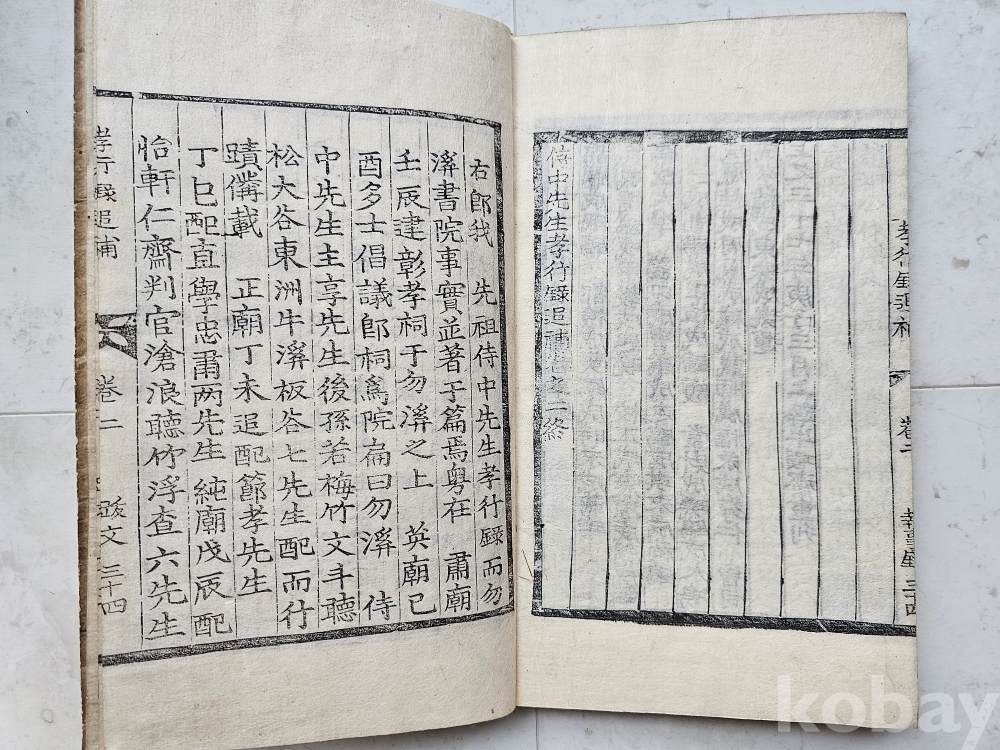 侍中先生孝行錄追補卷之二終
卷二
三十四
右卽我 先祖侍中先生孝行錄而勿
溪書院事實並著于篇焉粤在 肅廟
壬辰建彰孝祠于勿溪之上 英廟己
酉多士倡議卽祠爲院扁曰勿溪 侍
中先生主享先生後孫若梅竹文斗聽
松大谷東洲牛溪板谷七先生配而行
蹟備載 正廟丁未追配節孝先生
丁巳配直學忠肅两先生 純廟戊辰配
怡軒仁齋判官滄浪聽竹浮查六先生
孝行錄追補
卷二
跋文
三十四
kobay